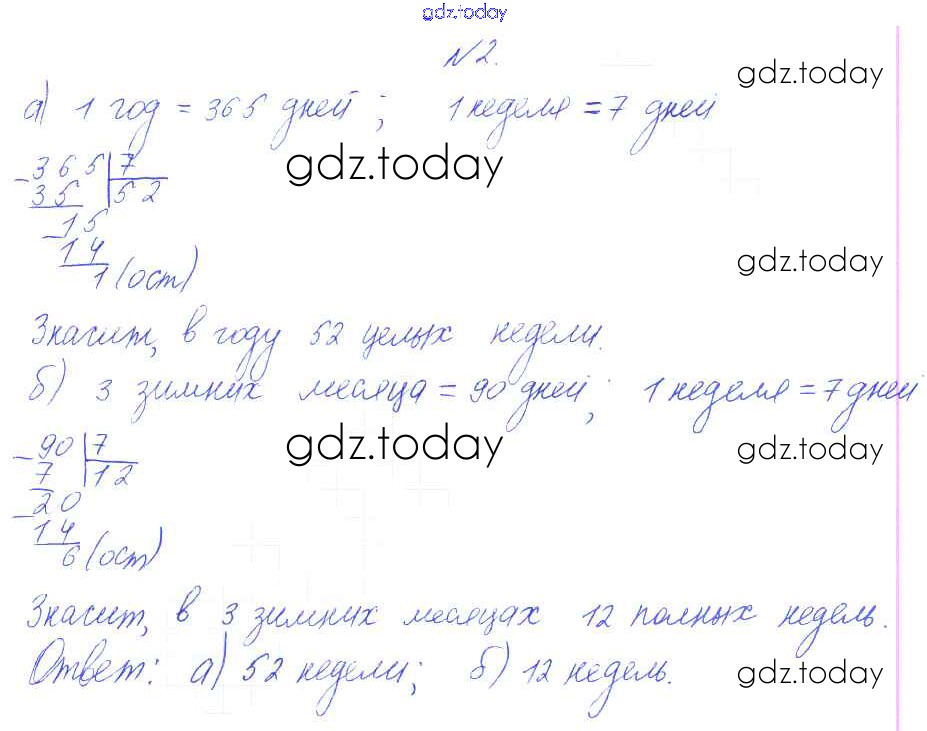 gdz.today
№2.
gdz.today
а) 1 год = 365 дней; 1 неделя = 7 дней
gdz.today
-365 7
35 52
-15
14
1 (ост)
gdz.today
Значит, в году 52 целых недели.
б) 3 зимних месяца = 90 дней; 1 неделя = 7 дней
gdz.today
gdz.today
-90 7
7 12
-20
14
6 (ост)
Значит, в 3 зимних месяцах 12 полных недель.
Ответ: а) 52 недели; б) 12 недель.
gdz.today